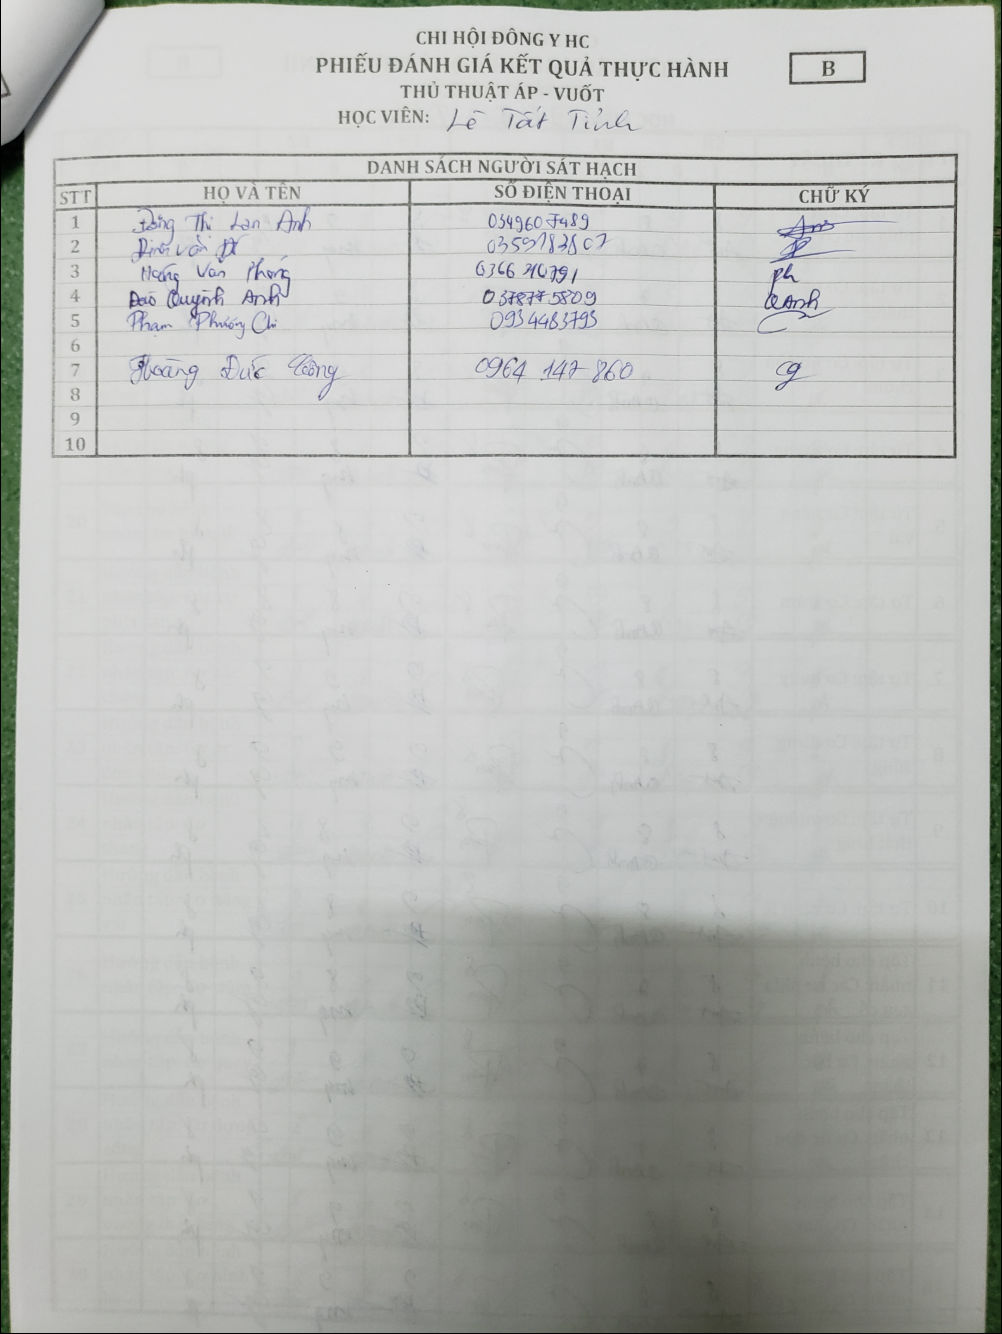 CHI HỘI ĐÔNG Y HC
PHIẾU ĐÁNH GIÁ KẾT QUẢ THỰC HÀNH
B
THỦ THUẬT ÁP - VUỐT
HỌC VIÊN: Lê Tất Tỉnh
DANH SÁCH NGƯỜI SÁT HẠCH
STT HỌ VÀ TÊN SỐ ĐIỆN THOẠI CHỮ KÝ
1 Đặng Thị Lan Anh 0349607489
2 Đinh Văn 0359783807
3 Hoàng Văn Phong ph
4 Đào Quỳnh Anh 0378775809 QAnh
5 Phạm Phương Chi 0934483793
6
7 Hoàng Đức 0964 147 860
8
9
10